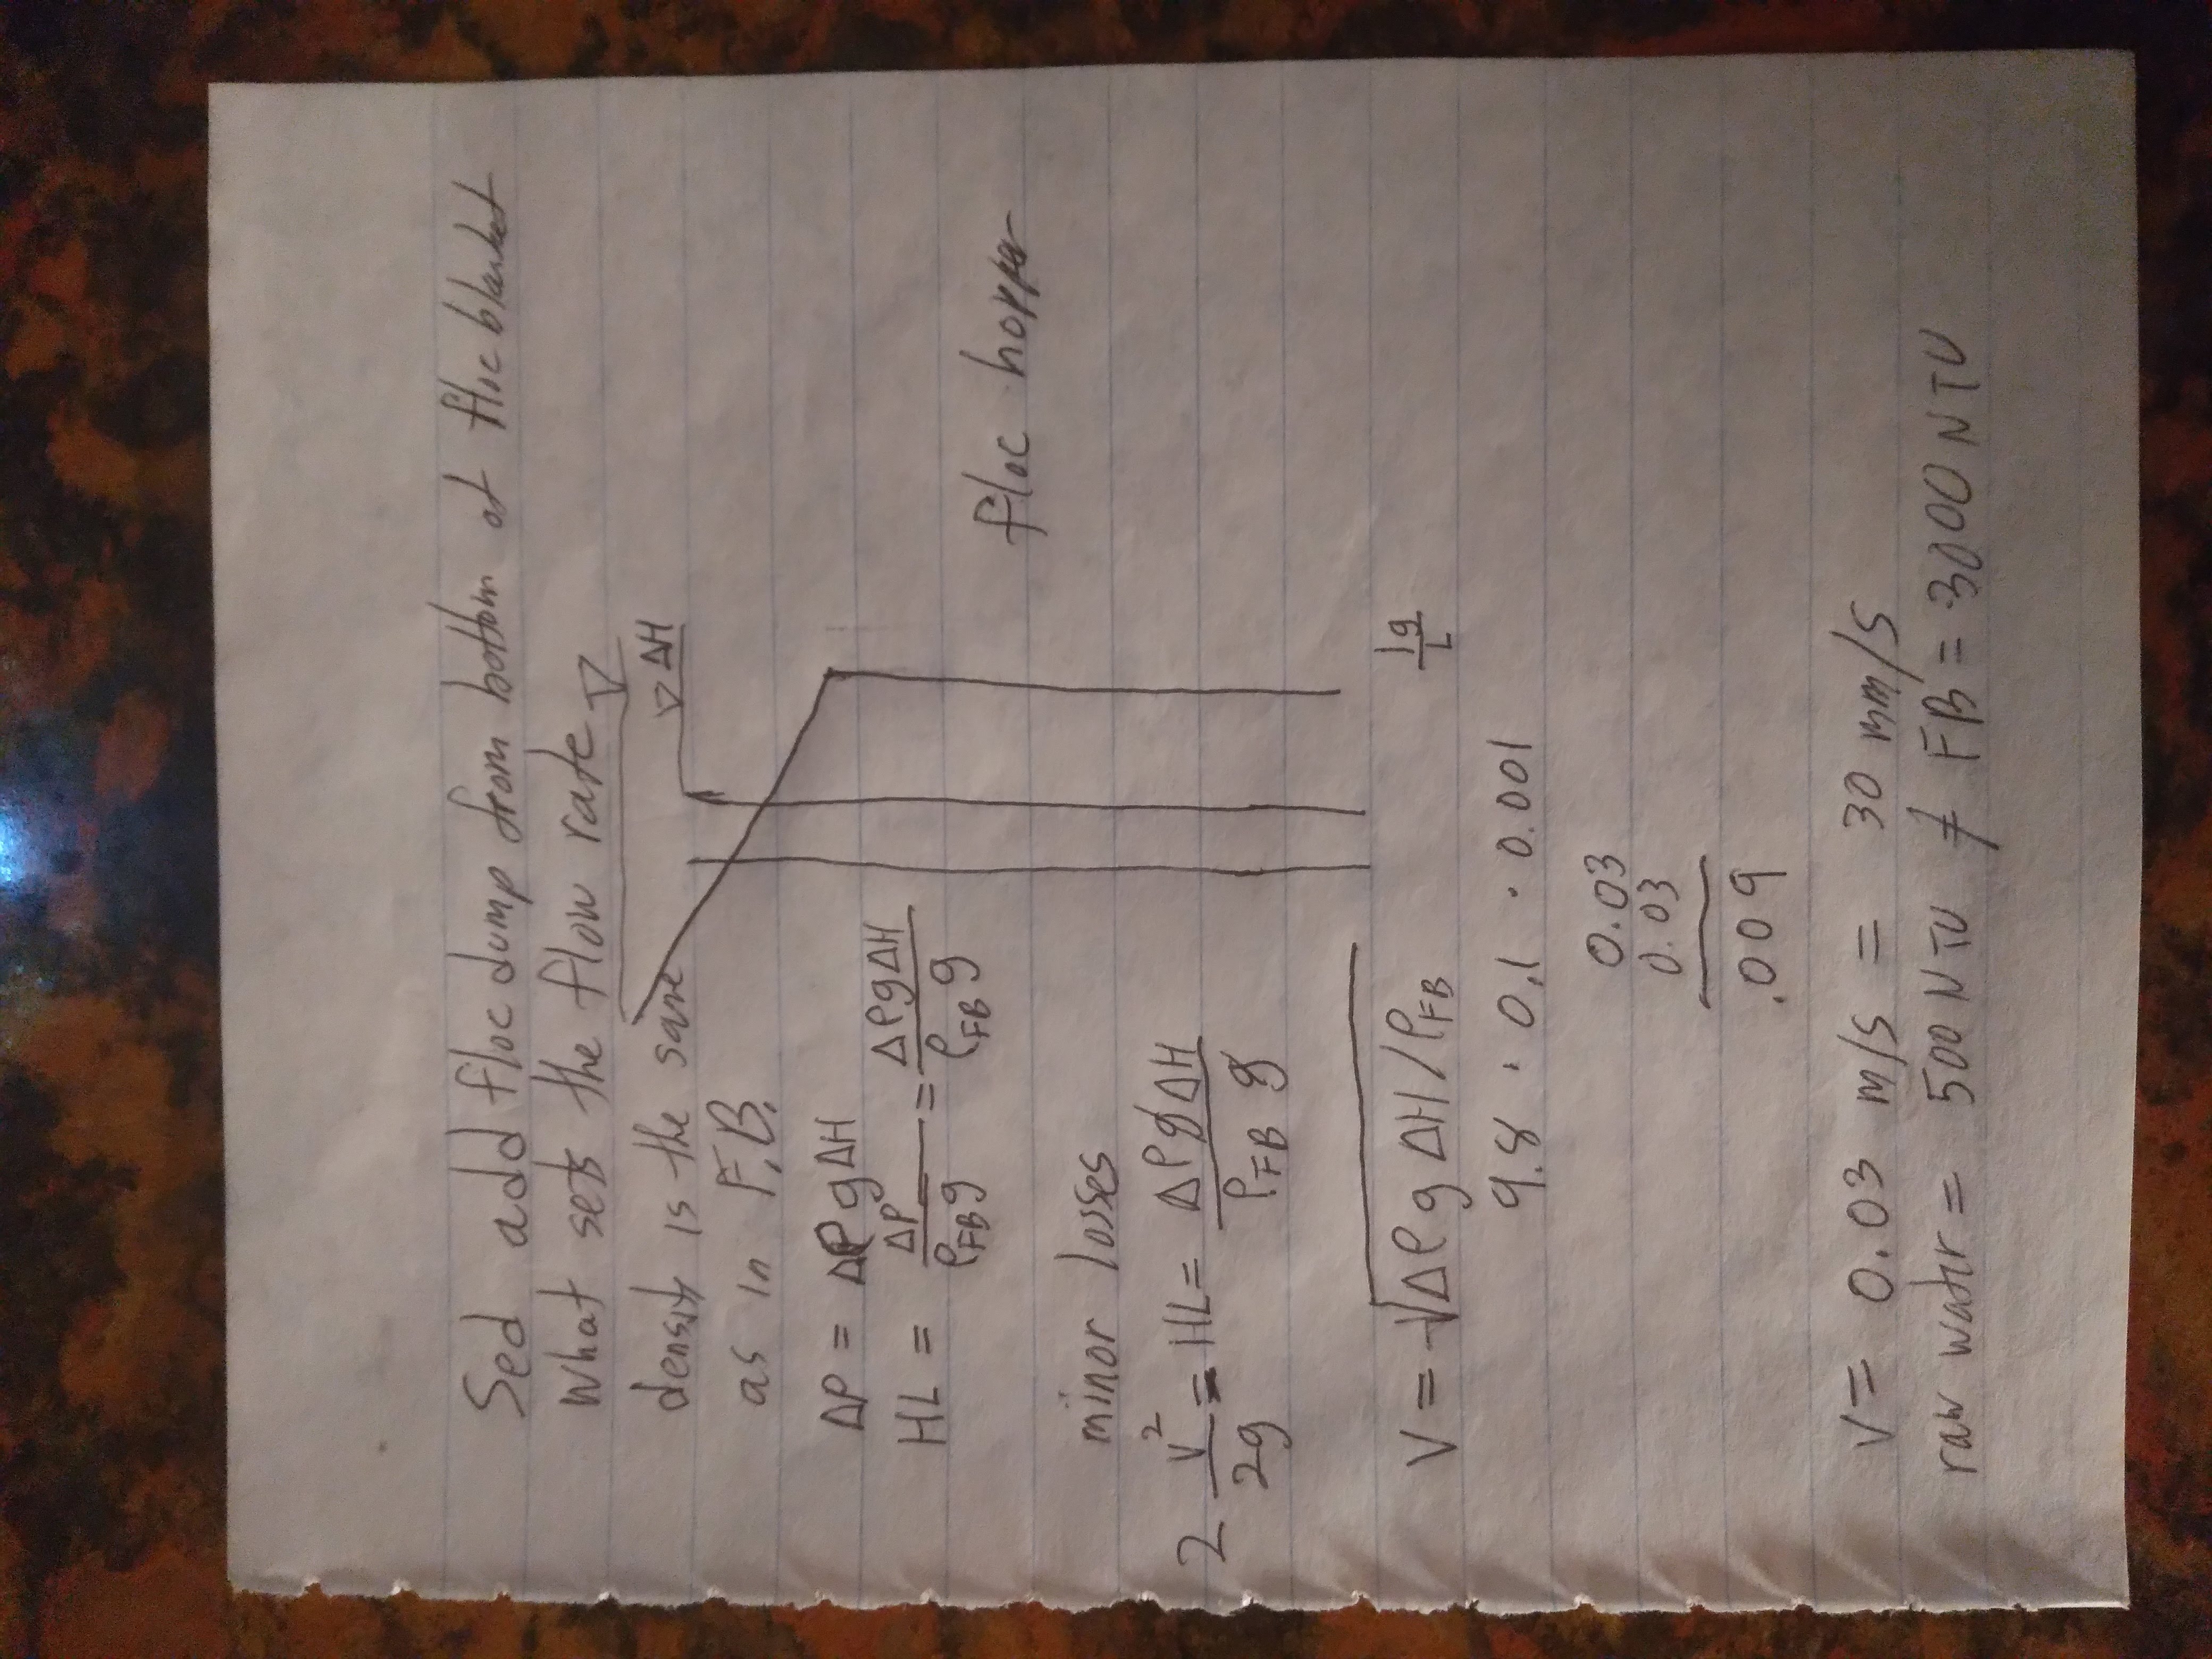 Sed add floc dump from bottom of floc blanket
What sets the flow rate ▽
density is the same ▽ ΔH
as in F.B.
ΔP = Δρ g ΔH
HL = ΔP / ρFB g = Δρ g ΔH / ρFB g
floc hopper
minor losses
2 v² / 2g = HL = Δρ g ΔH / ρFB g
V = √Δρ g ΔH / ρFB
1g / L
9.8 · 0.1 · 0.001
0.03
0.03
.009
V = 0.03 m/s = 30 mm/s
raw water = 500 NTU ≠ FB = 3000 NTU